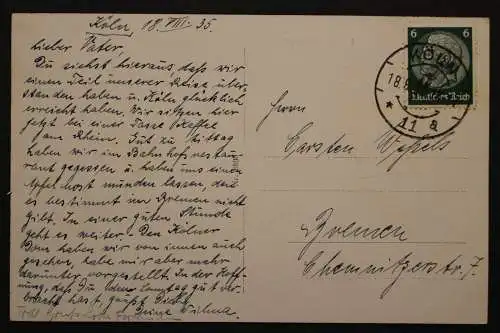 Köln, 18. VIII. 35.
Lieber Vater,
Du siehst hieraus, daß wir
einen Teil unserer Reise über-
standen haben u. Köln glücklich
erreicht haben. Wir sitzen hier
jetzt bei einer Tasse Kaffee
am Rhein. Gut zu Mittag
haben wir im Bahnhofsrestau-
rant gegessen u. haben uns einen
Apfelkost munden lassen, den
es bestimmt in Bremen nicht
gilt. In einer guten Stunde
geht es weiter. Den Kölner
Dom haben wir von innen auch
gesehen, habe mir aber mehr
darunter vorgestellt. In der Hoff-
nung, daß Du den Sonntag gut ver-
bracht hast, grüßt Dich
Deine Wilma.
6 6
Deutsches Reich
KÖLN
18.8
* 11 a
Herrn
Carsten
Bremen
Chemnitzerstr. 7.